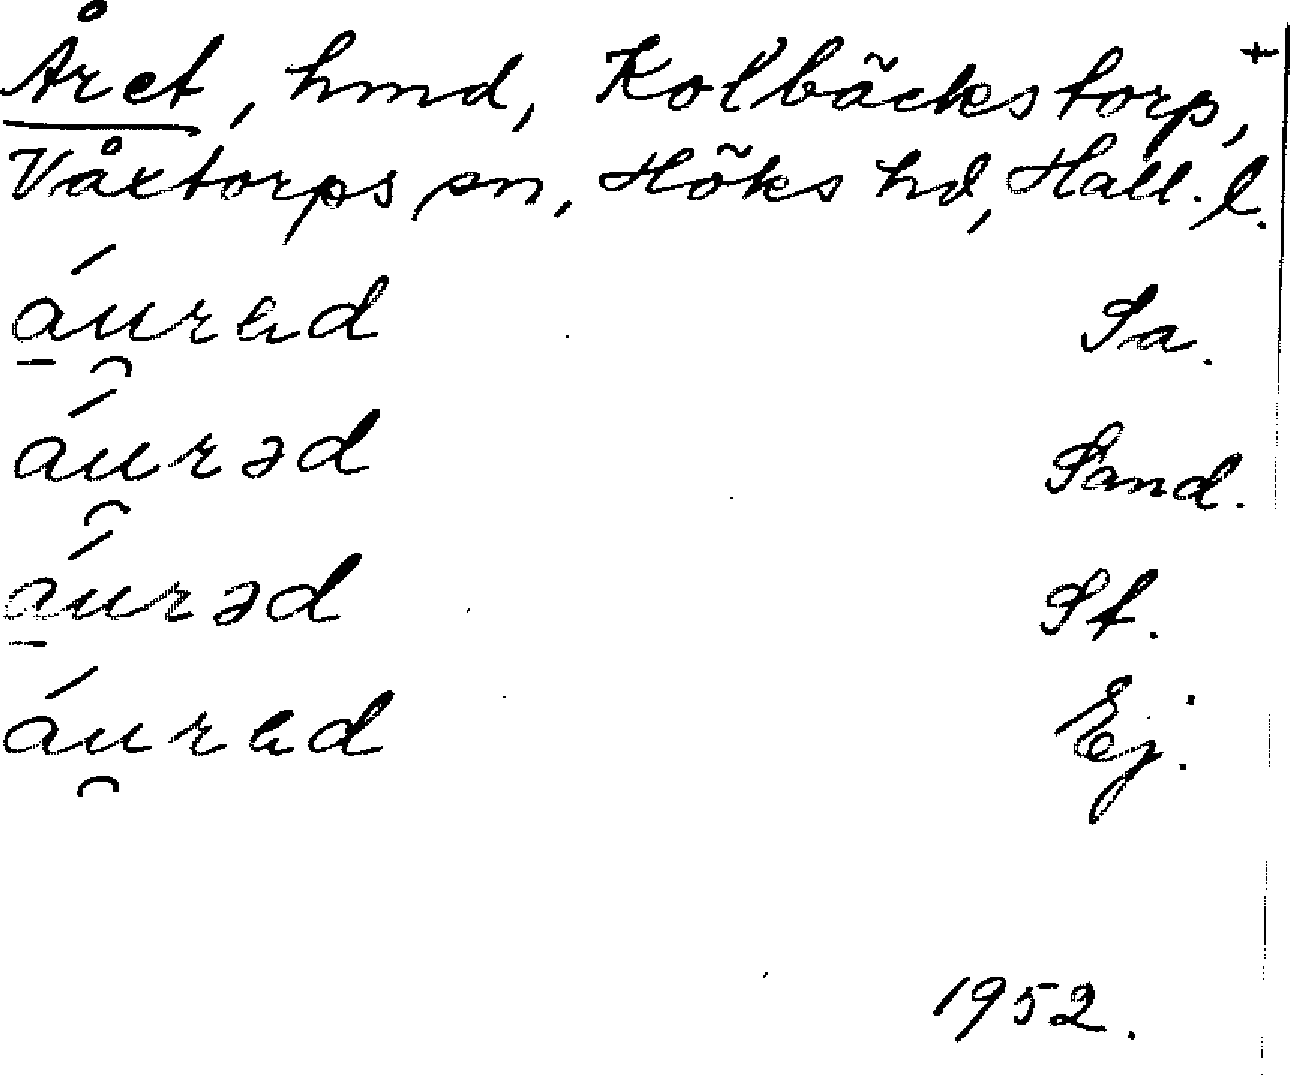 Året, hmd, Kolbäckstorp, +
Våxtorps sn, Höks hd, Hall. l.
á̱u̯rɐd Sa.
áu̯rəd Sand.
á̱urəd St.
áu̯rɐd Ej.
1952.